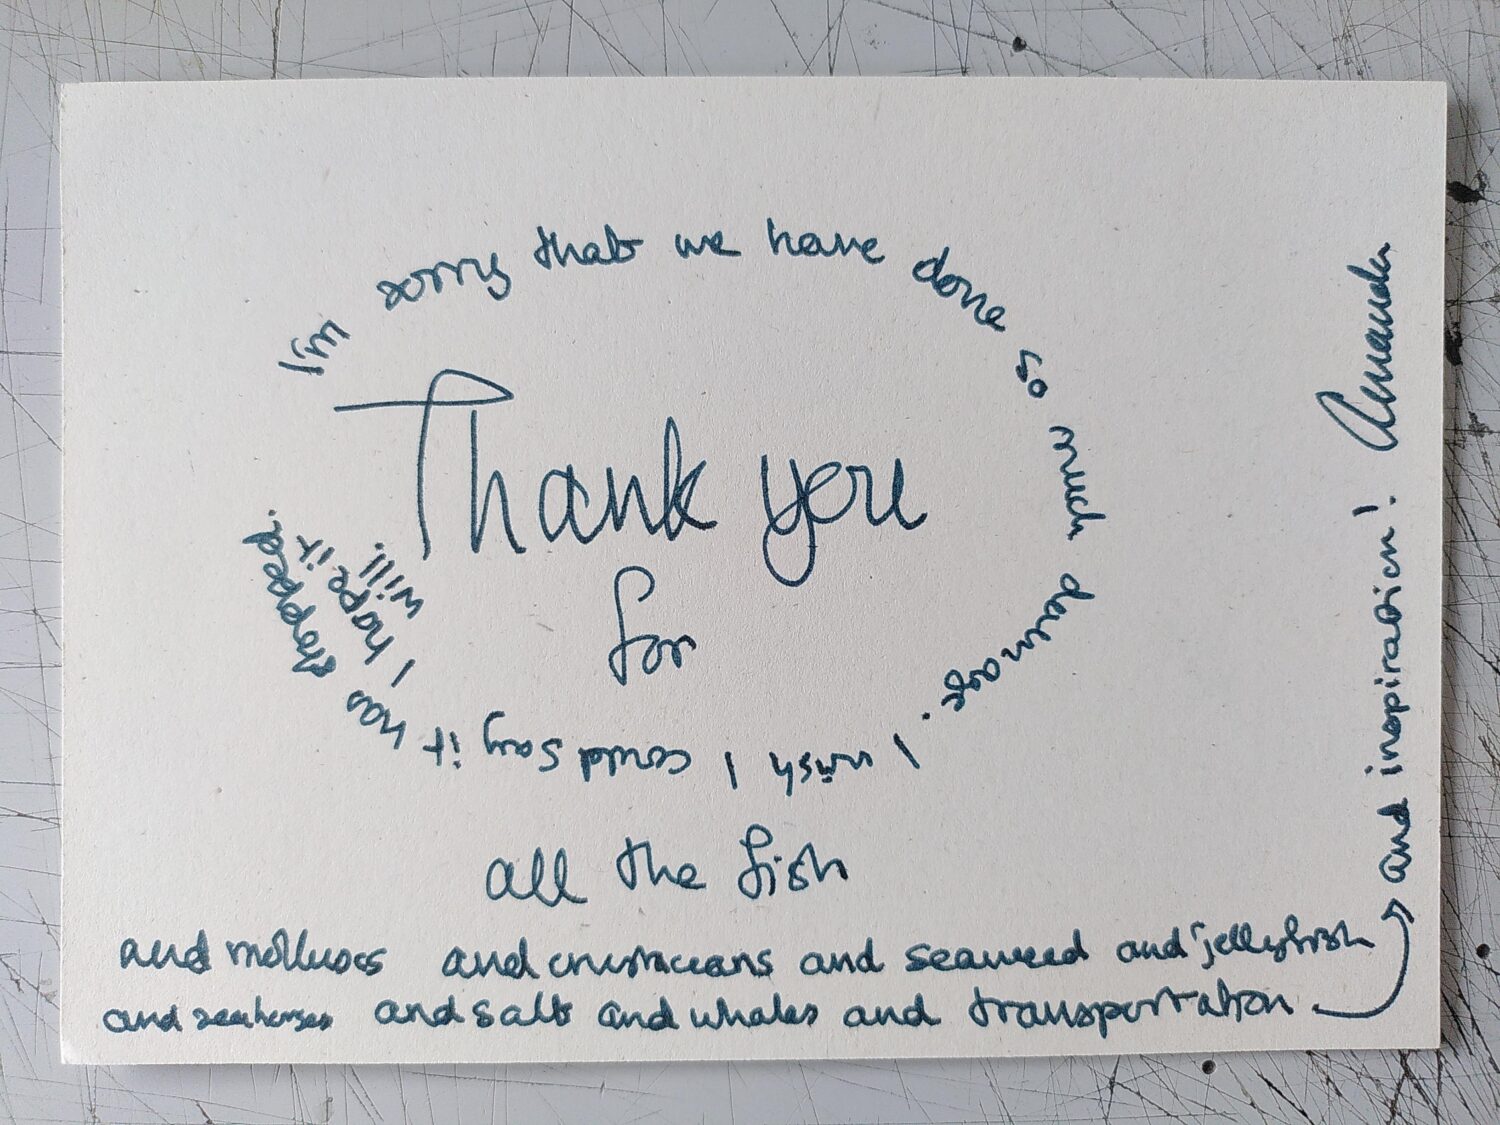 I'm sorry that we have done so much damage. I wish I could say it was stopped. I hope it will.
Thank you
for
all the fish
and molluscs and crustaceans and seaweed and jellyfish
and seahorses and salt and whales and transportation
and inspiration! Amanda